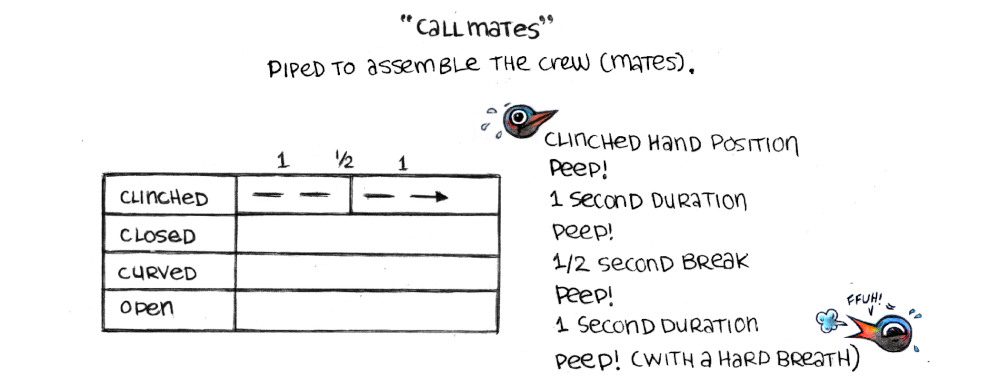 "Call mates"
PIPED TO assemble THE crew (mates).
1 1/2 1
CLINCHED
CLOSED
CURVED
OPEN
CLINCHED HAND POSITION
PEEP!
1 SECOND DURATION
PEEP!
1/2 SECOND BREAK
PEEP!
1 SECOND DURATION
PEEP! (WITH A HARD BREATH)
FFUH!